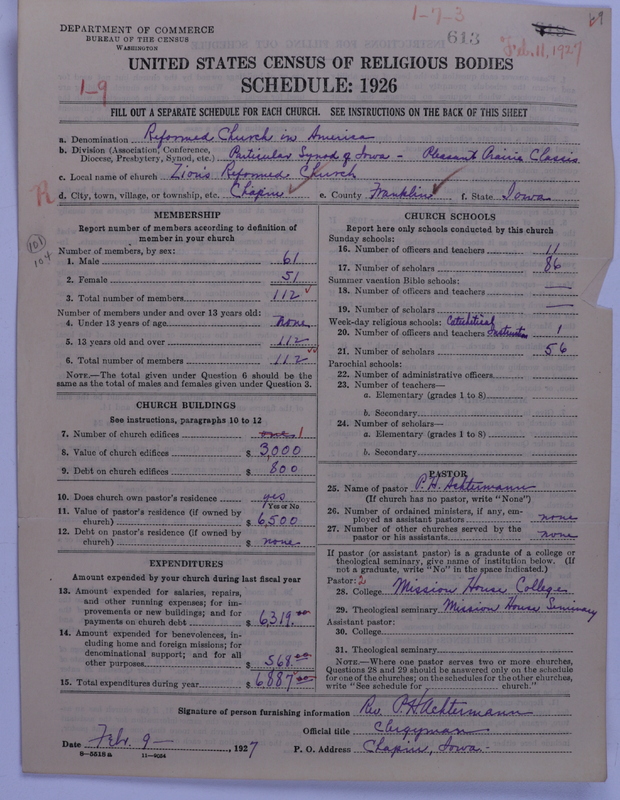 1-7-3
69
DEPARTMENT OF COMMERCE
BUREAU OF THE CENSUS
WASHINGTON
613
Feb. 11, 1927
UNITED STATES CENSUS OF RELIGIOUS BODIES
SCHEDULE: 1926
1-9
FILL OUT A SEPARATE SCHEDULE FOR EACH CHURCH. SEE INSTRUCTIONS ON THE BACK OF THIS SHEET
a. Denomination Reformed Church in America
b. Division (Association, Conference, Diocese, Presbytery, Synod, etc.) Particular Synod of Iowa - Pleasant Prairie Classis
c. Local name of church Zion's Reformed Church
R
d. City, town, village, or township, etc. Chapin e. County Franklin f. State Iowa
MEMBERSHIP
Report number of members according to definition of
member in your church
101
104
Number of members, by sex:
1. Male 61
2. Female 51
3. Total number of members 112
Number of members under and over 13 years old:
4. Under 13 years of age none
5. 13 years old and over 112
6. Total number of members 112
NOTE.—The total given under Question 6 should be the
same as the total of males and females given under Question 3.
CHURCH BUILDINGS
See instructions, paragraphs 10 to 12
7. Number of church edifices one 1
8. Value of church edifices $ 3,000
9. Debt on church edifices $ 800
10. Does church own pastor's residence yes
(Yes or No)
11. Value of pastor's residence (if owned by
church) $ 6,500
12. Debt on pastor's residence (if owned by
church) $ none
EXPENDITURES
Amount expended by your church during last fiscal year
13. Amount expended for salaries, repairs,
and other running expenses; for im-
provements or new buildings; and for
payments on church debt $ 6,319.00
14. Amount expended for benevolences, in-
cluding home and foreign missions; for
denominational support; and for all
other purposes $ 568.00
15. Total expenditures during year $ 6,887.00
CHURCH SCHOOLS
Report here only schools conducted by this church
Sunday schools:
16. Number of officers and teachers 11
17. Number of scholars 86
Summer vacation Bible schools:
18. Number of officers and teachers —
19. Number of scholars —
Week-day religious schools: Catechetical
20. Number of officers and teachers Instruction 1
21. Number of scholars 56
Parochial schools:
22. Number of administrative officers
23. Number of teachers—
a. Elementary (grades 1 to 8)
b. Secondary
24. Number of scholars—
a. Elementary (grades 1 to 8)
b. Secondary
PASTOR
25. Name of pastor P. H. Achtermann
(If church has no pastor, write "None")
26. Number of ordained ministers, if any, em-
ployed as assistant pastors none
27. Number of other churches served by the
pastor or his assistants none
If pastor (or assistant pastor) is a graduate of a college or
theological seminary, give name of institution below. (If
not a graduate, write "No" in the space indicated.)
Pastor: 2
28. College Mission House College
29. Theological seminary Mission House Seminary
Assistant pastor:
30. College
31. Theological seminary
NOTE.—Where one pastor serves two or more churches,
Questions 28 and 29 should be answered only on the schedule
for one of the churches; on the schedules for the other churches,
write "See schedule for ________ church."
Signature of person furnishing information Rev. P. H. Achtermann
Official title Clergyman
Date Feb. 9 —, 1927 P. O. Address Chapin, Iowa.-
8-5518a 11-9024